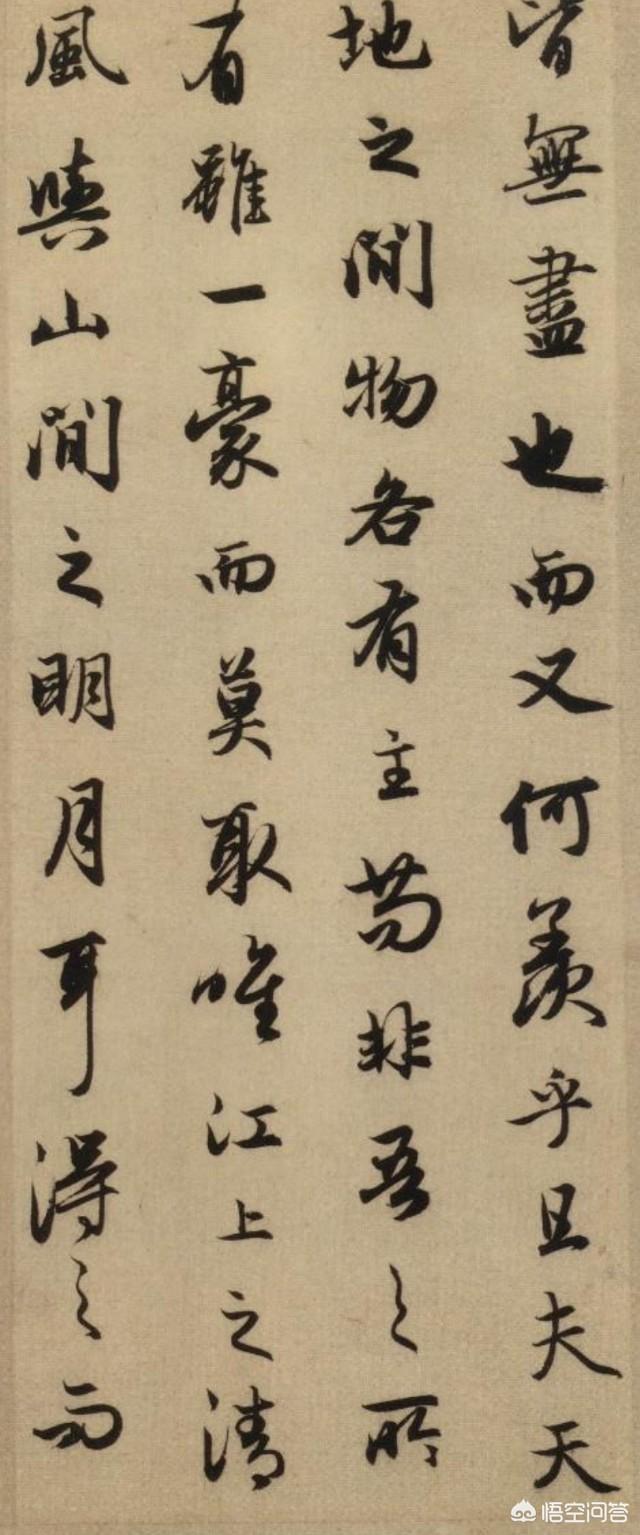 皆無盡也而又何羨乎且夫天
地之間物各有主苟非吾之所
有雖一豪而莫取唯江上之清
風與山間之明月耳得之而
悟空问答